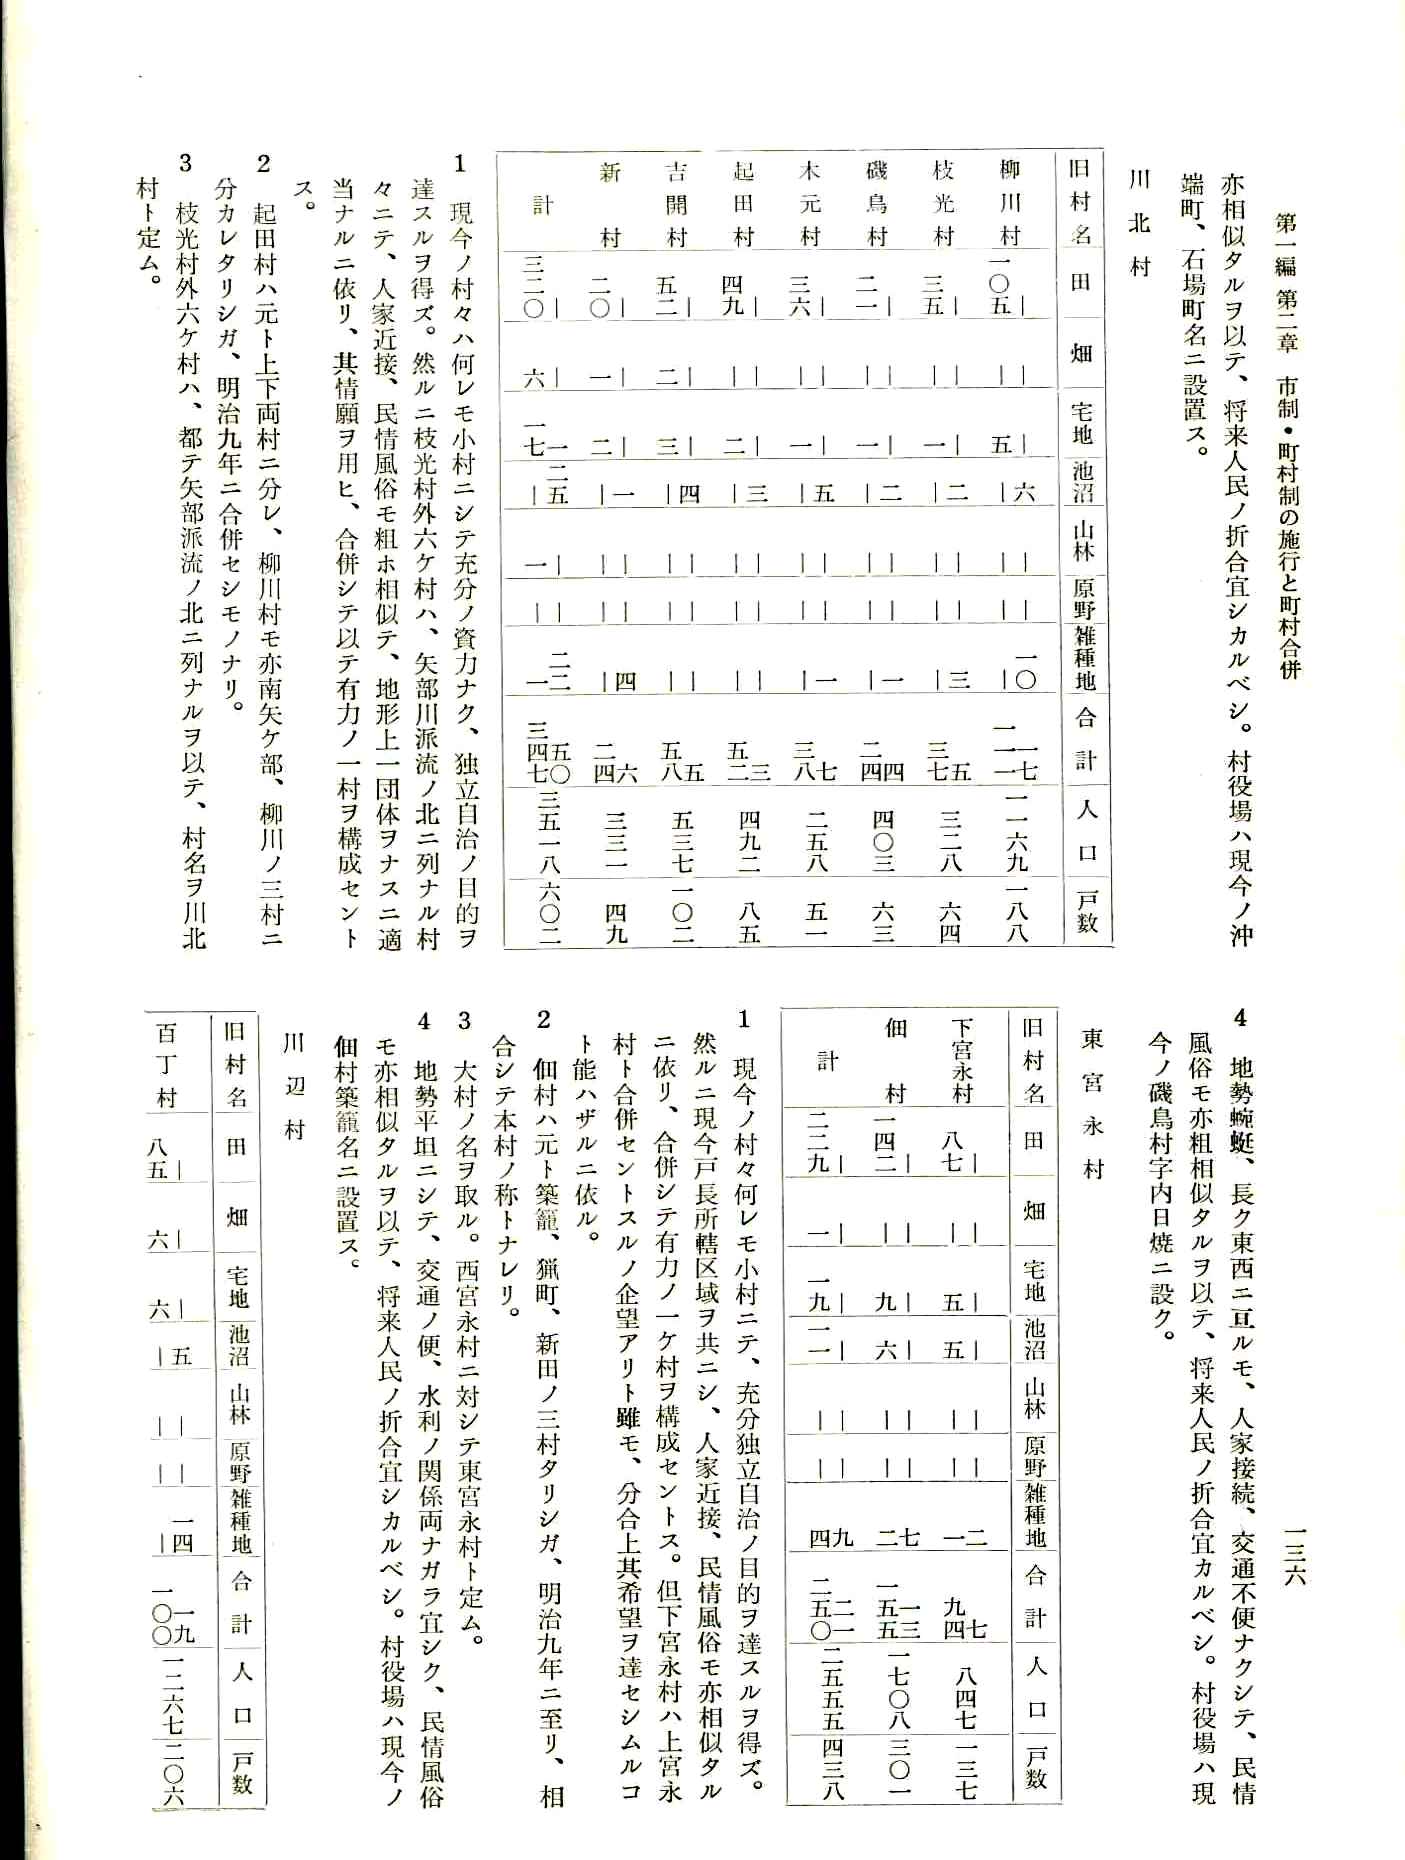 第一編 第二章　市制・町村制の施行と町村合併
亦相似タルヲ以テ、将来人民ノ折合宜シカルベシ。村役場ハ現今ノ沖
端町、石場町名ニ設置ス。
川北村
旧村名 田 畑 宅地 池沼 山林 原野 雑種地 合計 人口 戸数
柳川村 一〇五｜ ｜｜ 五｜ ｜六 ｜｜ ｜｜ ｜一〇 一一一 一七 一一六九 一八八
枝光村 三五｜ ｜｜ 一｜ ｜二 ｜｜ ｜｜ ｜三 三七 五 三二八 六四
磯鳥村 二一｜ ｜｜ 一｜ ｜二 ｜｜ ｜｜ ｜一 二四 四 四〇三 六三
木元村 三六｜ ｜｜ 一｜ ｜五 ｜｜ ｜｜ ｜一 三八 七 二五八 五一
起田村 四九｜ ｜｜ 二｜ ｜三 ｜｜ ｜｜ ｜｜ 五二 三 四九二 八五
吉開村 五二｜ 二｜ 三｜ ｜四 ｜｜ ｜｜ ｜｜ 五八 五 五三七 一〇二
新村 二〇｜ 一｜ 二｜ ｜一 ｜｜ ｜｜ ｜四 二四 六 三三一 四九
計 三二〇｜ 六｜ 一七 一 ｜二五 一｜ ｜｜ 一 二二 三四七 五〇 三五一八 六〇二
1　現今ノ村々ハ何レモ小村ニシテ充分ノ資力ナク、独立自治ノ目的ヲ
達スルヲ得ズ。然ルニ枝光村外六ケ村ハ、矢部川派流ノ北ニ列ナル村
々ニテ、人家近接、民情風俗モ粗ホ相似テ、地形上一団体ヲナスニ適
当ナルニ依リ、其情願ヲ用ヒ、合併シテ以テ有力ノ一村ヲ構成セント
ス。
2　起田村ハ元ト上下両村ニ分レ、柳川村モ亦南矢ケ部、柳川ノ三村ニ
分カレタリシガ、明治九年ニ合併セシモノナリ。
3　枝光村外六ケ村ハ、都テ矢部派流ノ北ニ列ナルヲ以テ、村名ヲ川北
村ト定ム。
4　地勢蜿蜒、長ク東西ニ亘ルモ、人家接続、交通不便ナクシテ、民情
風俗モ亦粗相似タルヲ以テ、将来人民ノ折合宜カルベシ。村役場ハ現
今ノ磯鳥村字内日焼ニ設ク。
東宮永村
旧村名 田 畑 宅地 池沼 山林 原野 雑種地 合計 人口 戸数
下宮永村 八七｜ ｜｜ 五｜ 五｜ ｜｜ ｜｜ 一二 九四 七 八四七 一三七
佃村 一四二｜ ｜｜ 九｜ 六｜ ｜｜ ｜｜ 二七 一五五 一三 一七〇八 三〇一
計 二二九｜ 一｜ 一九｜ 一一｜ ｜｜ ｜｜ 四九 二五〇 二一 二五五五 四三八
1　現今ノ村々何レモ小村ニテ、充分独立自治ノ目的ヲ達スルヲ得ズ。
然ルニ現今戸長所轄区域ヲ共ニシ、人家近接、民情風俗モ亦相似タル
ニ依リ、合併シテ有力ノ一ケ村ヲ構成セントス。但下宮永村ハ上宮永
村ト合併セントスルノ企望アリト雖モ、分合上其希望ヲ達セシムルコ
ト能ハザルニ依ル。
2　佃村ハ元ト築籠、猟町、新田ノ三村タリシガ、明治九年ニ至リ、相
合シテ本村ノ称トナレリ。
3　大村ノ名ヲ取ル。西宮永村ニ対シテ東宮永村ト定ム。
4　地勢平坦ニシテ、交通ノ便、水利ノ関係両ナガラ宜シク、民情風俗
モ亦相似タルヲ以テ、将来人民ノ折合宜シカルベシ。村役場ハ現今ノ
佃村築籠名ニ設置ス。
川辺村
旧村名 田 畑 宅地 池沼 山林 原野 雑種地 合計 人口 戸数
百丁村 八五｜ 六｜ 六｜ ｜五 ｜｜ ｜｜ ｜一四 一〇〇 一九 一二六七 二〇六
一三六